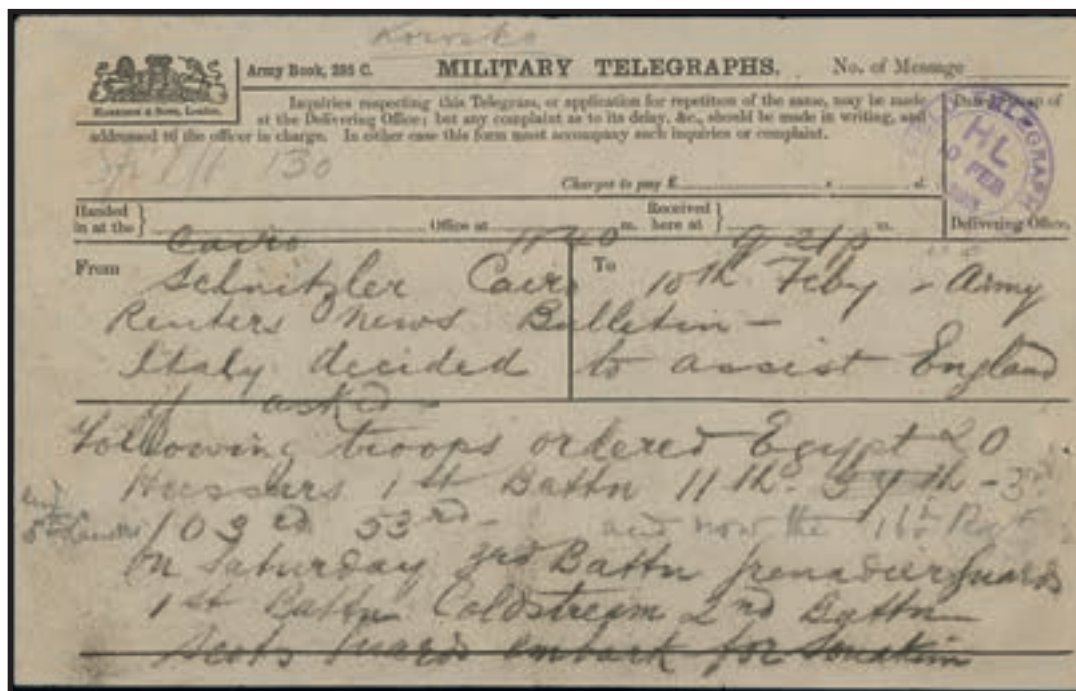 Korosko
Army Book, 295 C. MILITARY TELEGRAPHS. No. of Message
HARRISON & SONS, London.
Inquiries respecting this Telegram, or application for repetition of the same, may be made
at the Delivering Office; but any complaint as to its delay, &c., should be made in writing, and
addressed to the officer in charge. In either case this form must accompany such inquiries or complaint.
of
TELEGRAPH
HL
10 FEB
130
Charges to pay £ s. d.
Handed in at the } Office at m. Received here at } m. Delivering Office.
Cairo 1140 9 21 p
From Schnitzler Cairo To 10th Feby - Army
Reuters News Bulletin -
Italy decided to assist England
if asked -
Following troops ordered Egypt 20
Hussars 1st Battn 11th - - 3rd
5th Lancers 103rd 53rd - and now the
On Saturday 3rd Battn Grenadier Guards
1st Battn Coldstream 2nd Battn
Scots Guards embark for Souakim